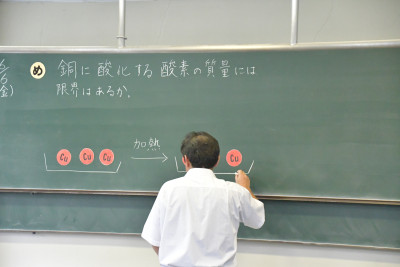 め 銅に酸化する酸素の質量には
限界はあるか。
加熱
Cu Cu Cu Cu